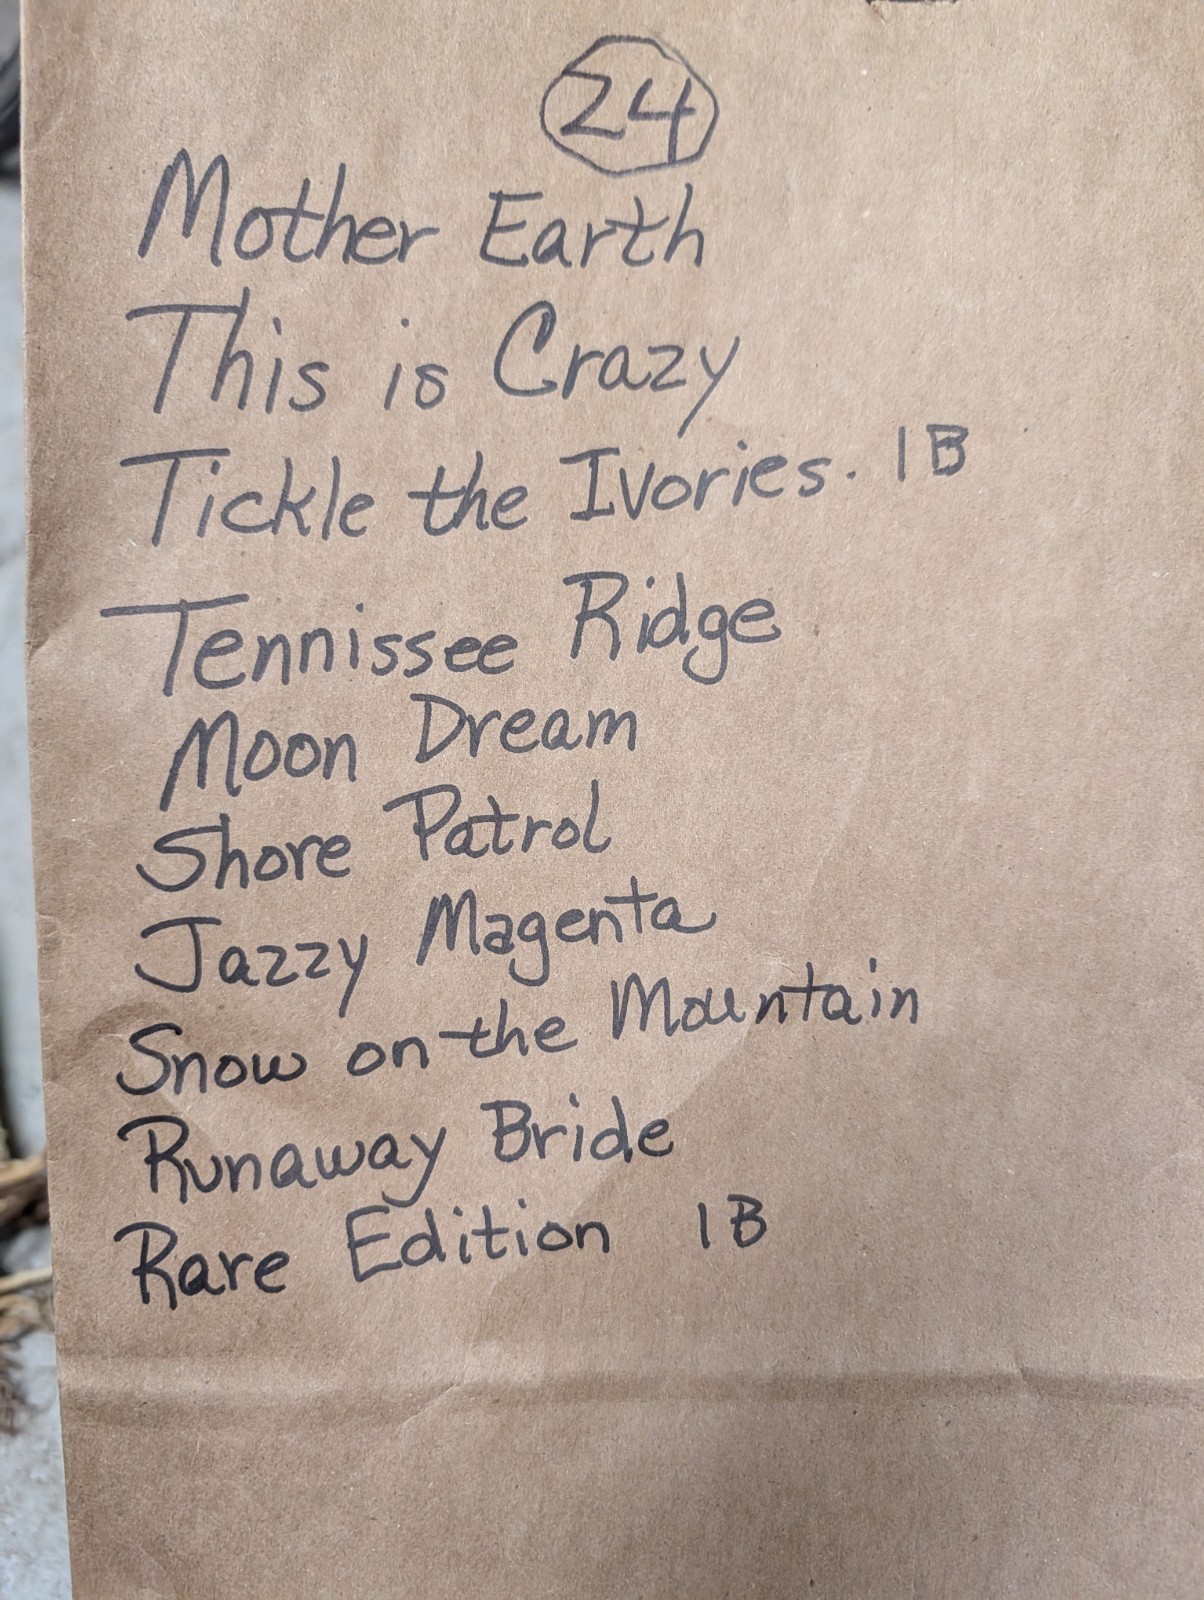 24
Mother Earth
This is Crazy
Tickle the Ivories. 1B
Tennissee Ridge
Moon Dream
Shore Patrol
Jazzy Magenta
Snow on the Mountain
Runaway Bride
Rare Edition 1B